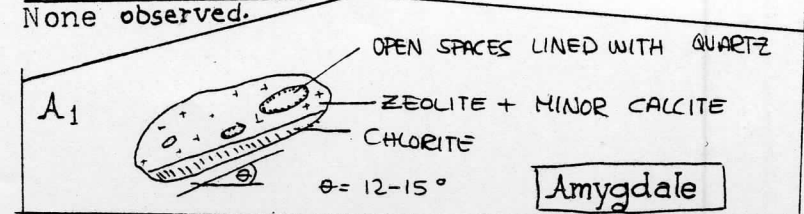 None observed.
OPEN SPACES LINED WITH QUARTZ
A1
ZEOLITE + MINOR CALCITE
CHLORITE
θ
θ= 12-15°
Amygdale